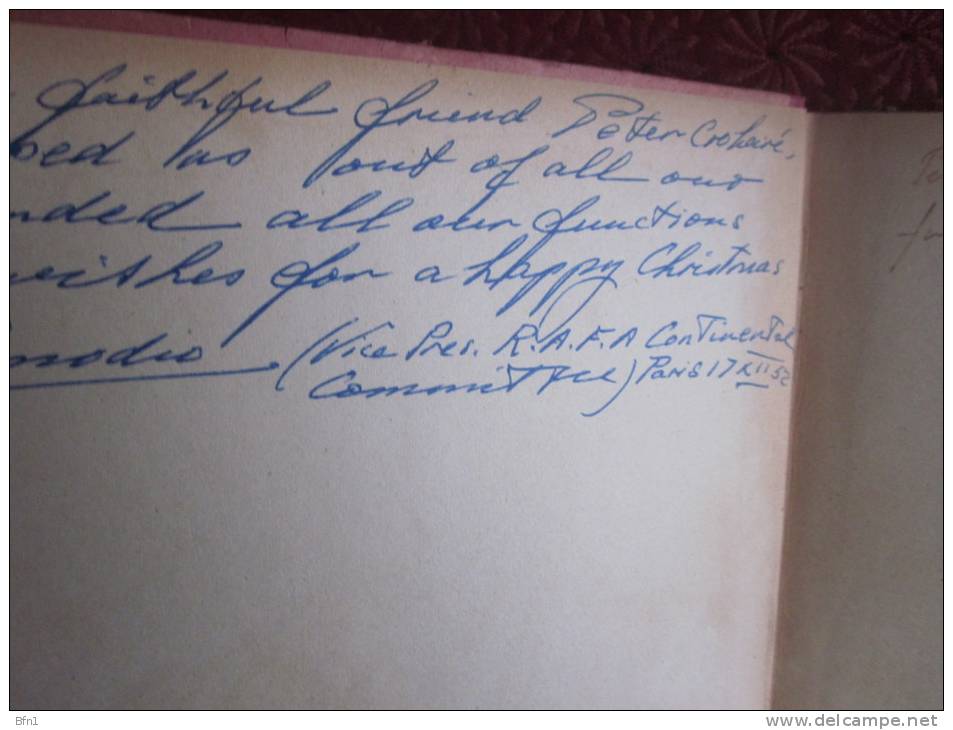 faithful friend Peter
bed us out of all our
nded all our functions
wishes for a happy Christmas
(Vice Pres. R.A.F.A Continental
Committee) Paris 17 XII 52
Bfn1
www.delcampe.net